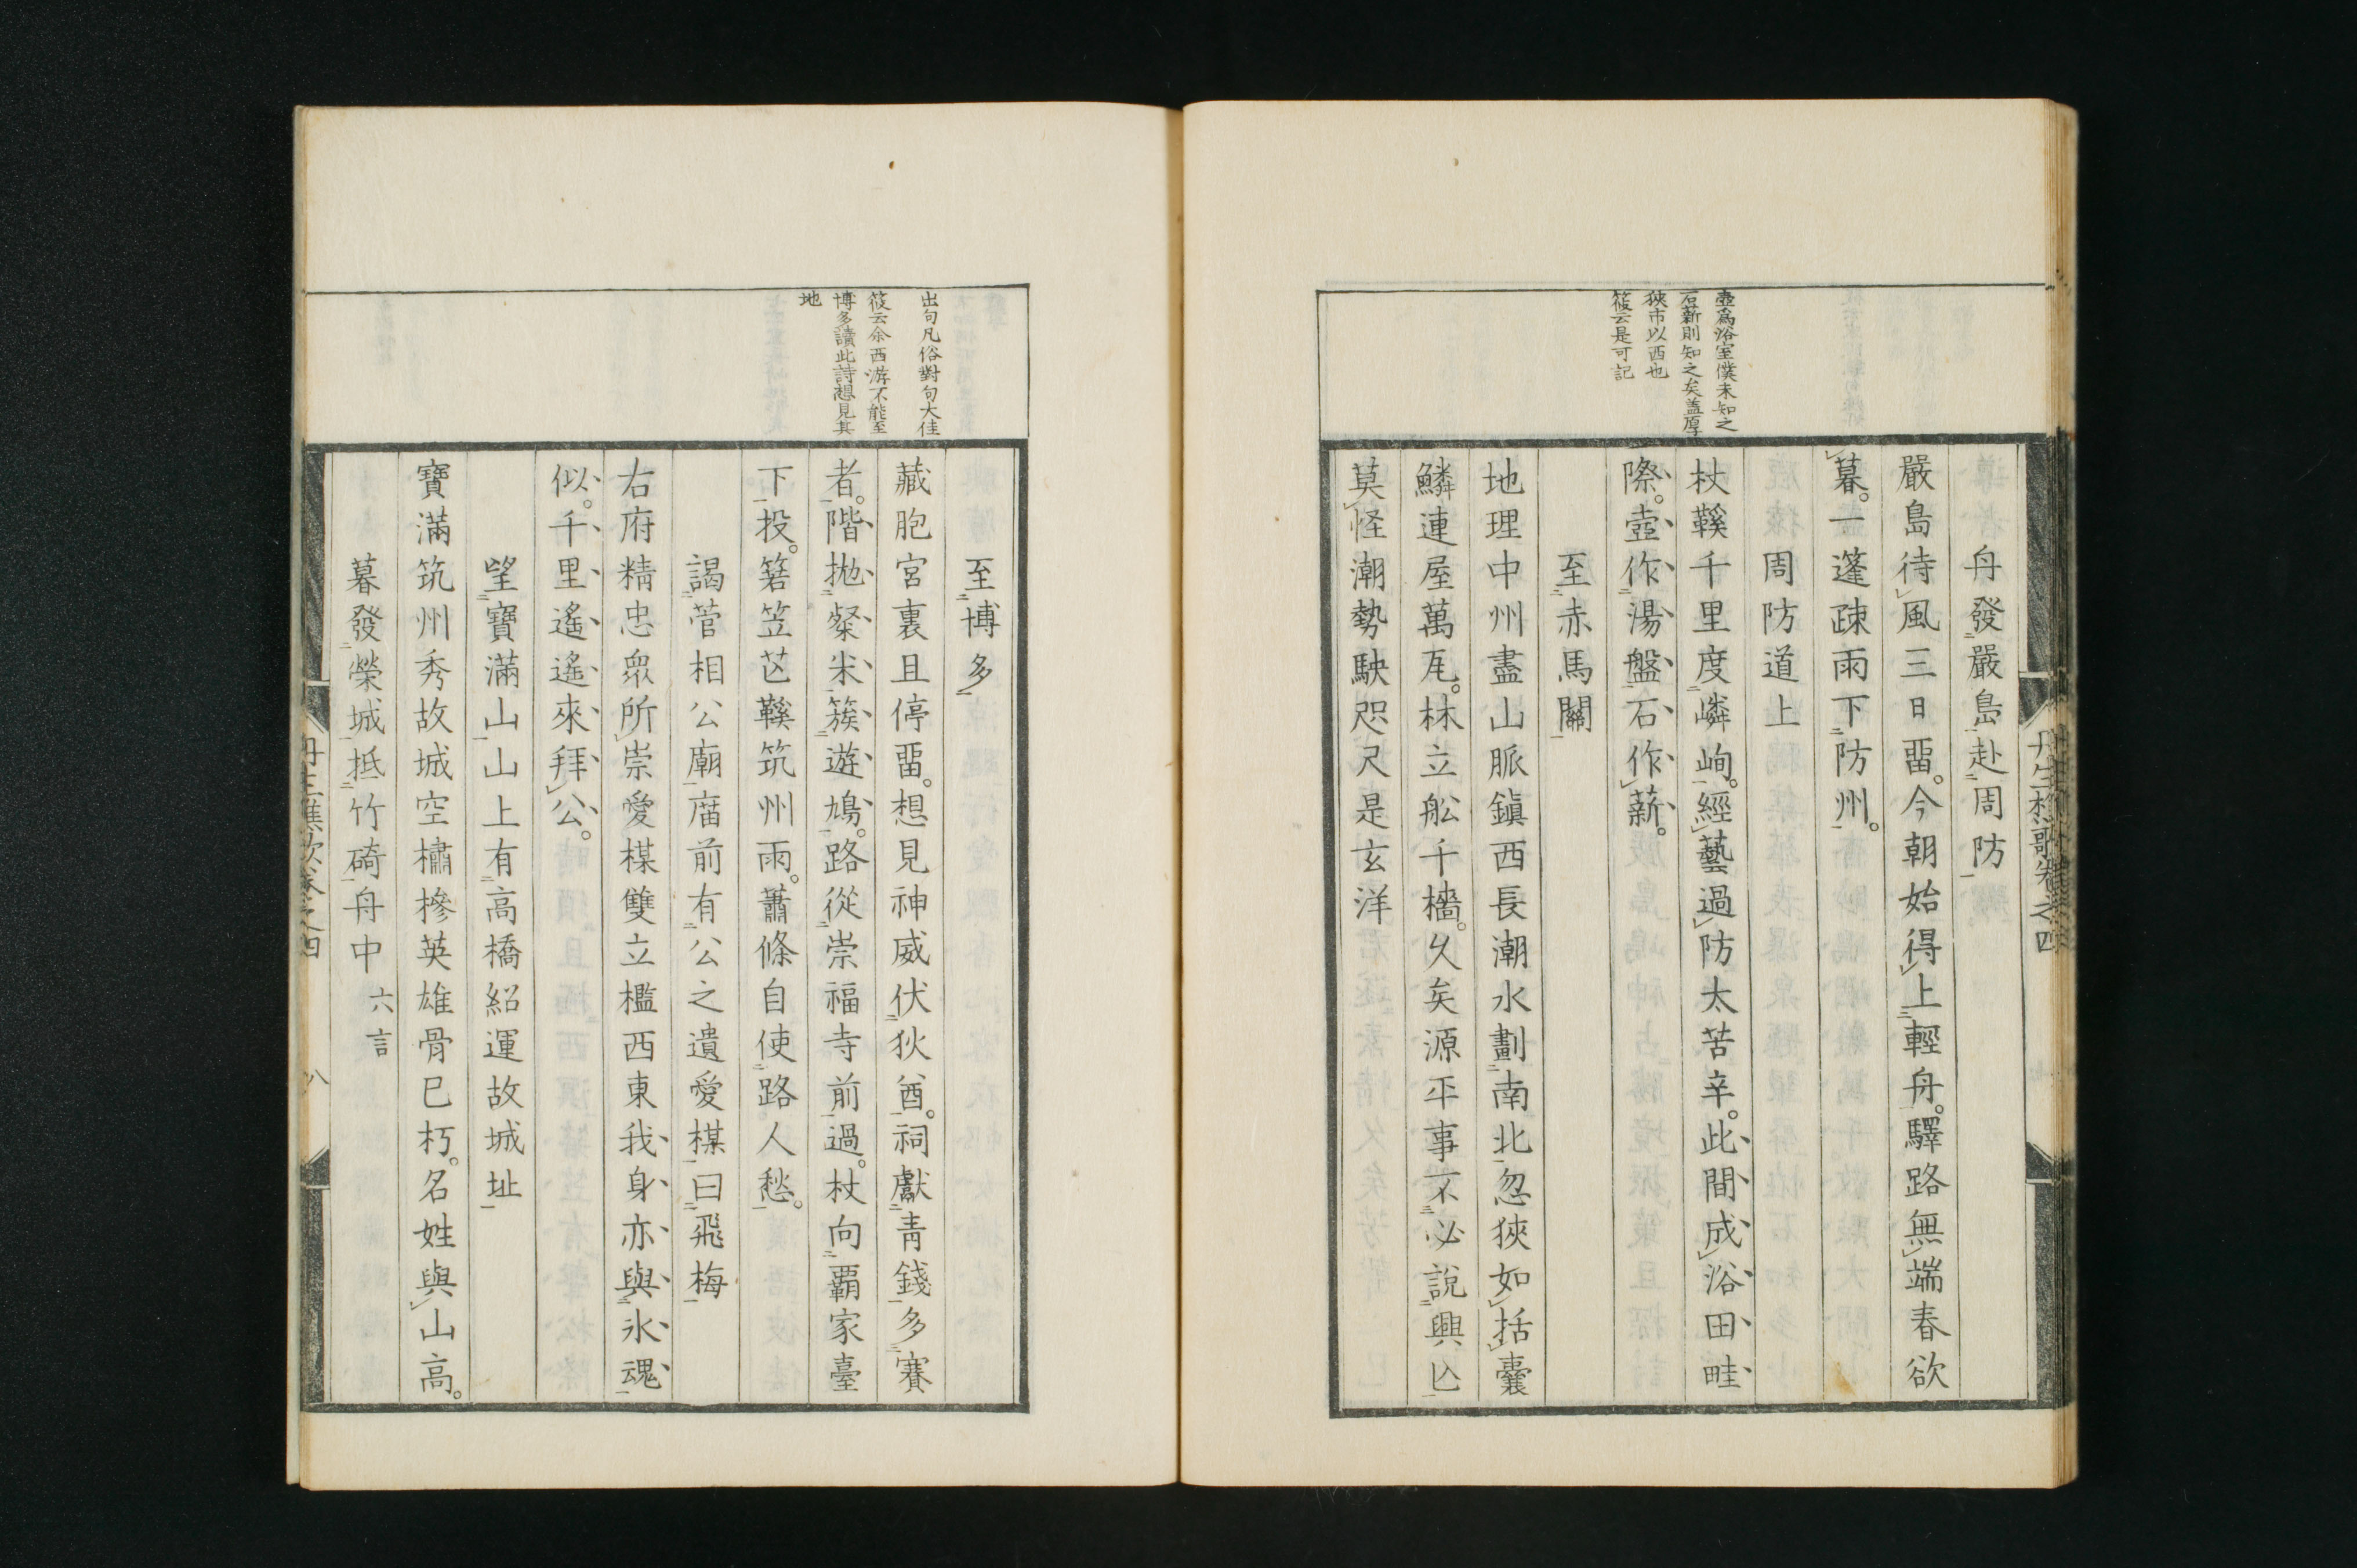 壺爲浴室僕未知之
石薪則知之矣蓋厚
狹市以西也
筱云是可記
舟發嚴島赴周防
嚴島待風三日畱。今朝始得上輕舟。驛路無端春欲
暮。一蓬疎雨下防州。
周防道上
杖鞵千里度嶙峋。經藝過防太苦辛。此間成浴田畦
際。壺作湯盤石作薪。
至赤馬關
地理中州盡山脈鎮西長潮水劃南北忽狹如括囊
鱗連屋萬瓦。林立舩千檣。久矣源平事不必說興亾
莫怪潮勢駛咫尺是玄洋
出句凡俗對句大佳
筱云余西游不能至
博多讀此詩想見其
地
至博多
藏胞宮裏且停畱。想見神威伏狄酋。祠獻青錢多賽
者。階拋粲米簇遊鳩。路從崇福寺前過。杖向覇家臺
下投。箬笠芒鞵筑州雨。蕭條自使路人愁。
謁菅相公廟庿前有公之遺愛楳曰飛梅
右府精忠眾所崇愛楳雙立檻西東我身亦與氷魂
似。千里遙遙來拜公。
望寶滿山山上有高橋紹運故城址
寶滿筑州秀故城空橚槮英雄骨已朽。名姓與山高。
暮發榮城抵竹碕舟中 六言
八